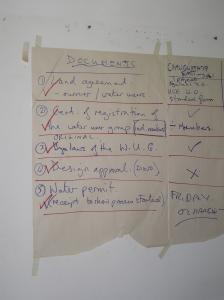 DOCUMENTS
① Land agreement
– owner / water users.
② Cert. of registration of
the water user group (incl. members)
÷ Members.
ORIGINAL
③ Byelaws of the W.U.G.
④ Design approval. (DWO).
⑤ Water permit.
(receipt to show process started)
Standard form
FRIDAY
02 MARCH